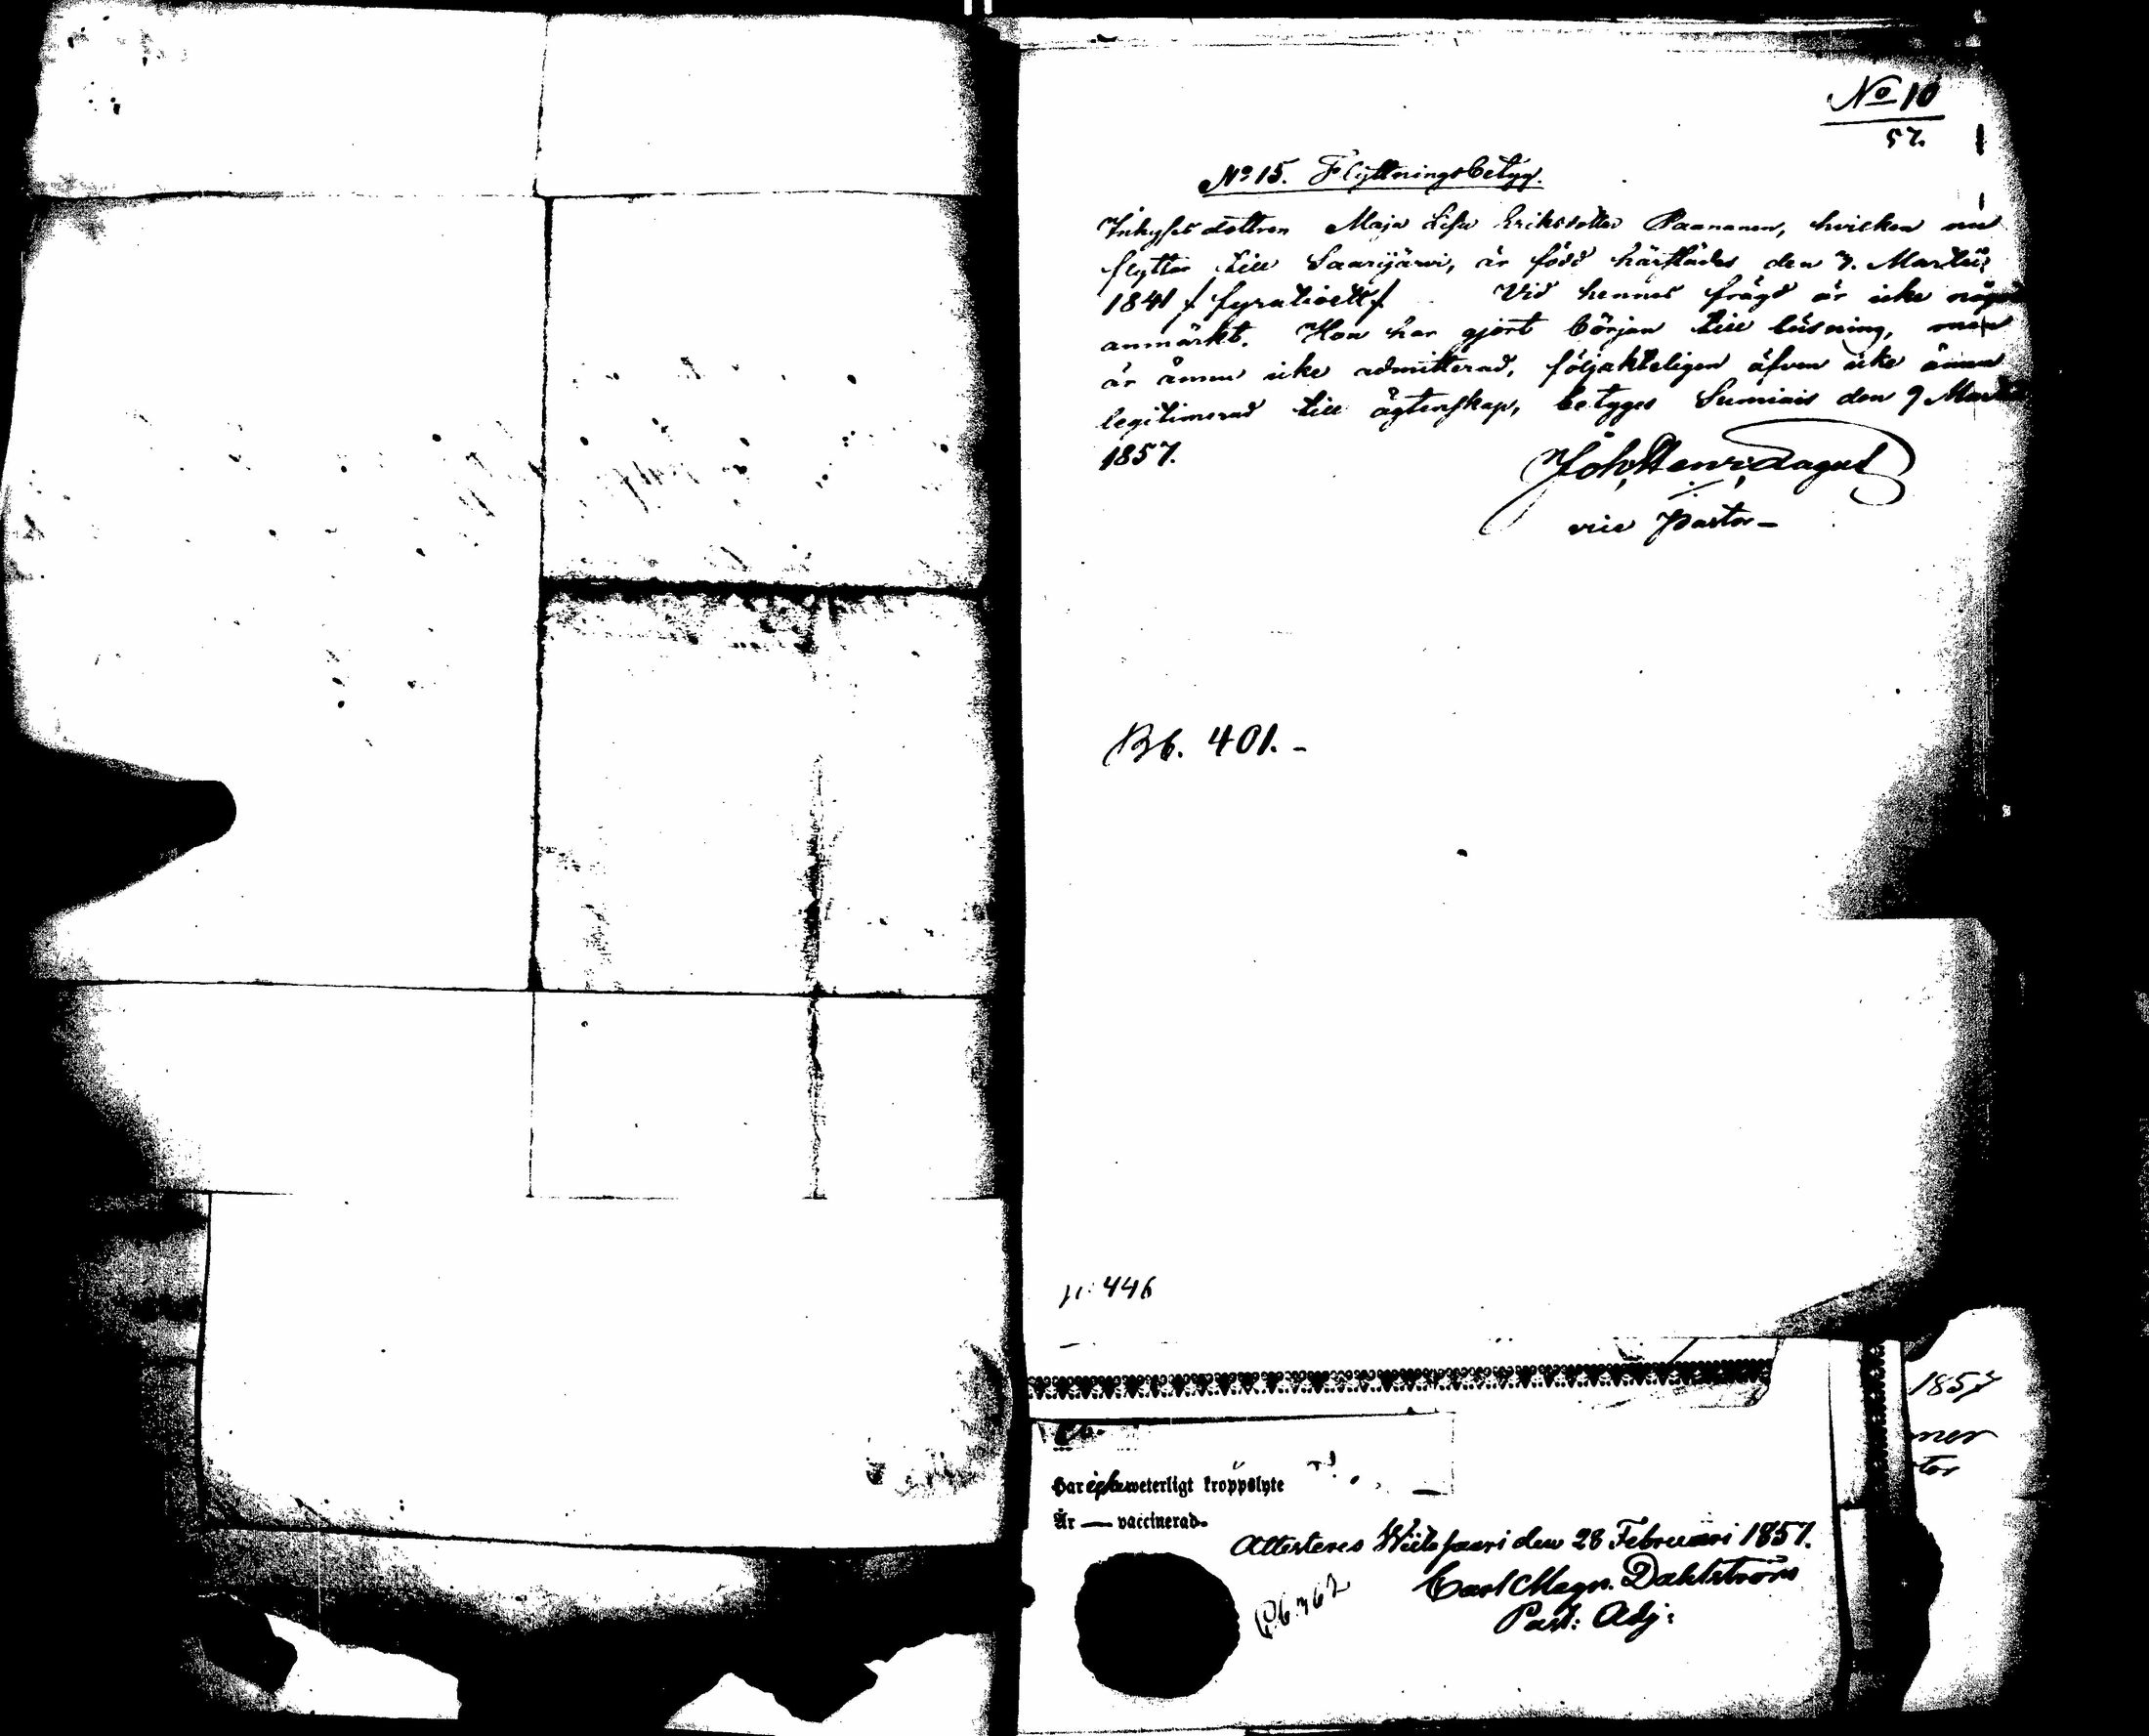 No 10
57.
No 15. Flyttningsbetyg.
Inhyses dottren Maja Lisa Eriksdotter Paananen, hvilken nu
flyttar till Saarijärvi, är född härstädes den 7. Martii
1841 /: fyrationett :/ Vid hennes frägd är icke något
anmärkt. Hon har gjort början till läsning, men
är ännu icke admitterad, följakteligen äfven icke ännu
legitimerad till ägtenskap, betyges Sumiais den 9 Martii
1857.
Joh. Henr.
vice Pastor
Bb. 401.
p: 446
Har icke weterligt kroppslyte
Är — vaccinerad.
Attesteres Wiitasaari den 28 Februari 1857.
Carl Magn. Dahlström
Past: Adj:
1857